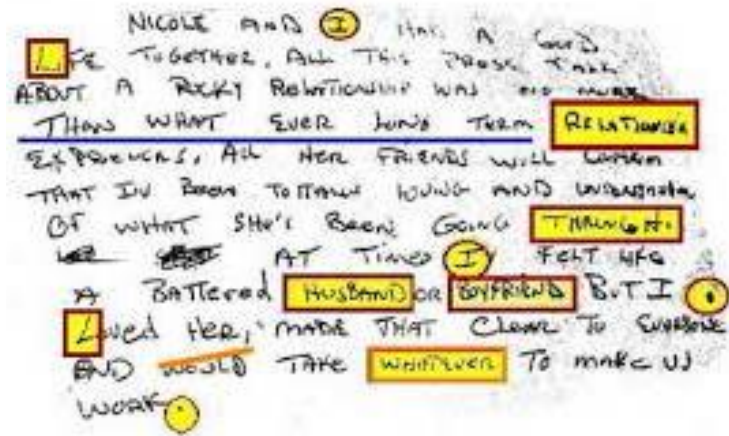 NICOLE AND I HAD A GOOD
LIFE TOGETHER, ALL THIS PRESS TALK
ABOUT A ROCKY RELATIONSHIP WAS NO MORE
THAN WHAT EVER LONG TERM RELATIONSHIP
EXPERIENCES, ALL HER FRIENDS WILL CONFIRM
THAT I'V BEEN TOTALLY LOVING AND UNDERSTANDING
OF WHAT SHE'S BEEN GOING THROUGH.
AT TIMES I FELT LIKE
A BATTERED HUSBAND OR BOYFRIEND BUT I
LOVED HER, MADE THAT CLEAR TO EVERYONE
AND WOULD TAKE WHATEVER TO MAKE US
WORK.